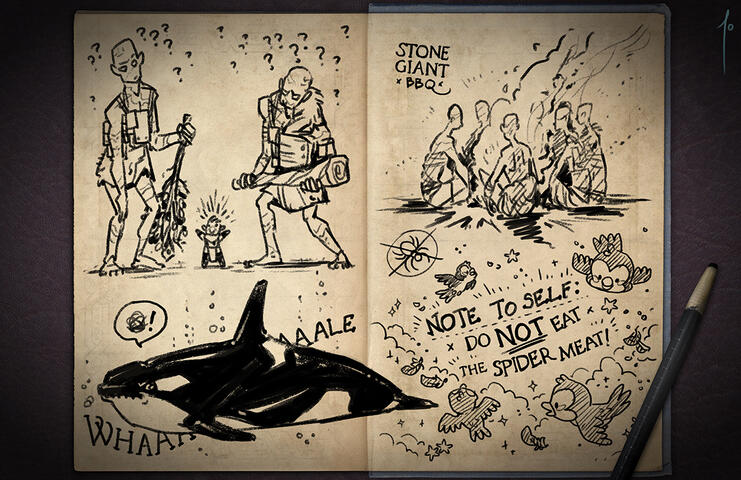 ? ? ? ? ? ? ? ? ? ? ? ? ? ? ? ? ? ? ? ? ? ? ? ? ? ?
!
WHAAA AALE
STONE
GIANT
BBQ
NOTE TO SELF:
DO NOT EAT
THE SPIDER MEAT!